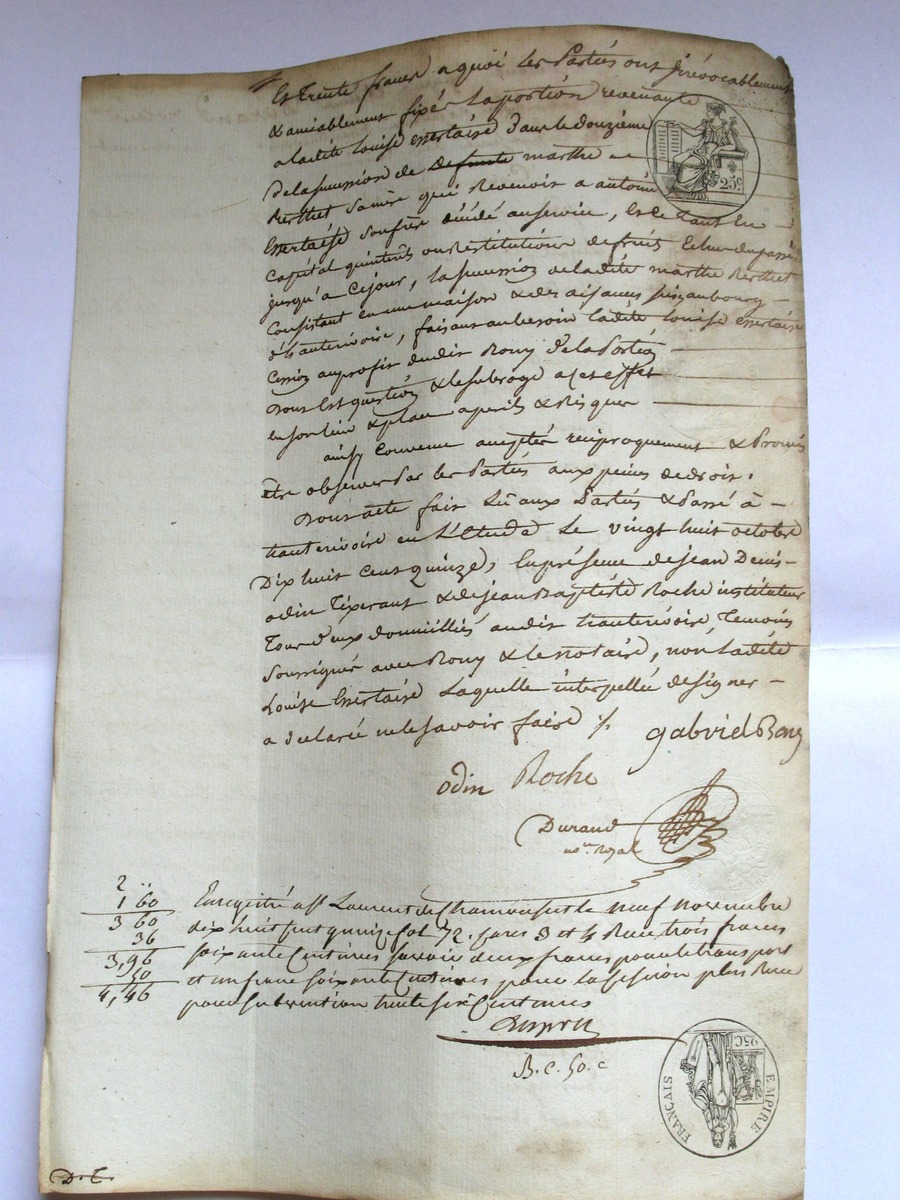 Et Trente francs a quoi les Parties ont irrévocablement
& amiablement fixés la portion revenante
a ladite Louise Essertaise dans le douzieme
de la succession de Defunte marthe
Berthet sa mere qui Revenoit a antoine
Essertaise son frere décédé au service, Et ce Tant En
Capital quintérêts ou Restitution de fruits Echus du passé
jusqu'a Cejour, la succession deladite marthe Berthet
Consistant en une maison & des aisances
d'hauterivoire, faisant aubesoin ladite Louise essertaise
Cession auprofit dudit Rony de la Portion
dont Est question & le subroge a cet effet
en son lieu & place a perils & Risques
ainsy Convenu accepté réciproquement & Promis
être observé Par les Parties aux peines de droit.
Dont acte fait Lû aux Parties & Passé à
hauterivoire en L'Etude Le vingt huit octobre
Dix huit Cent quinze, En présence de jean Denis
odin Tixerant & de jean Baptiste Roche instituteur
Tous d'eux domiciliés audit hauterivoire Temoins
soussignés avec Rony & le notaire, non Ladite
Louise Essertaise Laquelle interpellée de signer
a declaré ne le savoir faire ./.
gabriel Rony
odin Roche
Durand
no.re Royal
2 "
1 60
3 60
36
3,96
50
4,46
Enregistré a St Laurent de Chamousset le neuf novembre
dix huit cent quinze fol 72. cases 3 et 4 Recu trois francs
soixante Centimes savoir deux francs pour le transport
et un franc soixante Centimes pour la cession plus Recu
pour subvention trente six Centimes
B. C. 50. c
D. C.
25C
25C
EMPIRE
FRANÇAIS